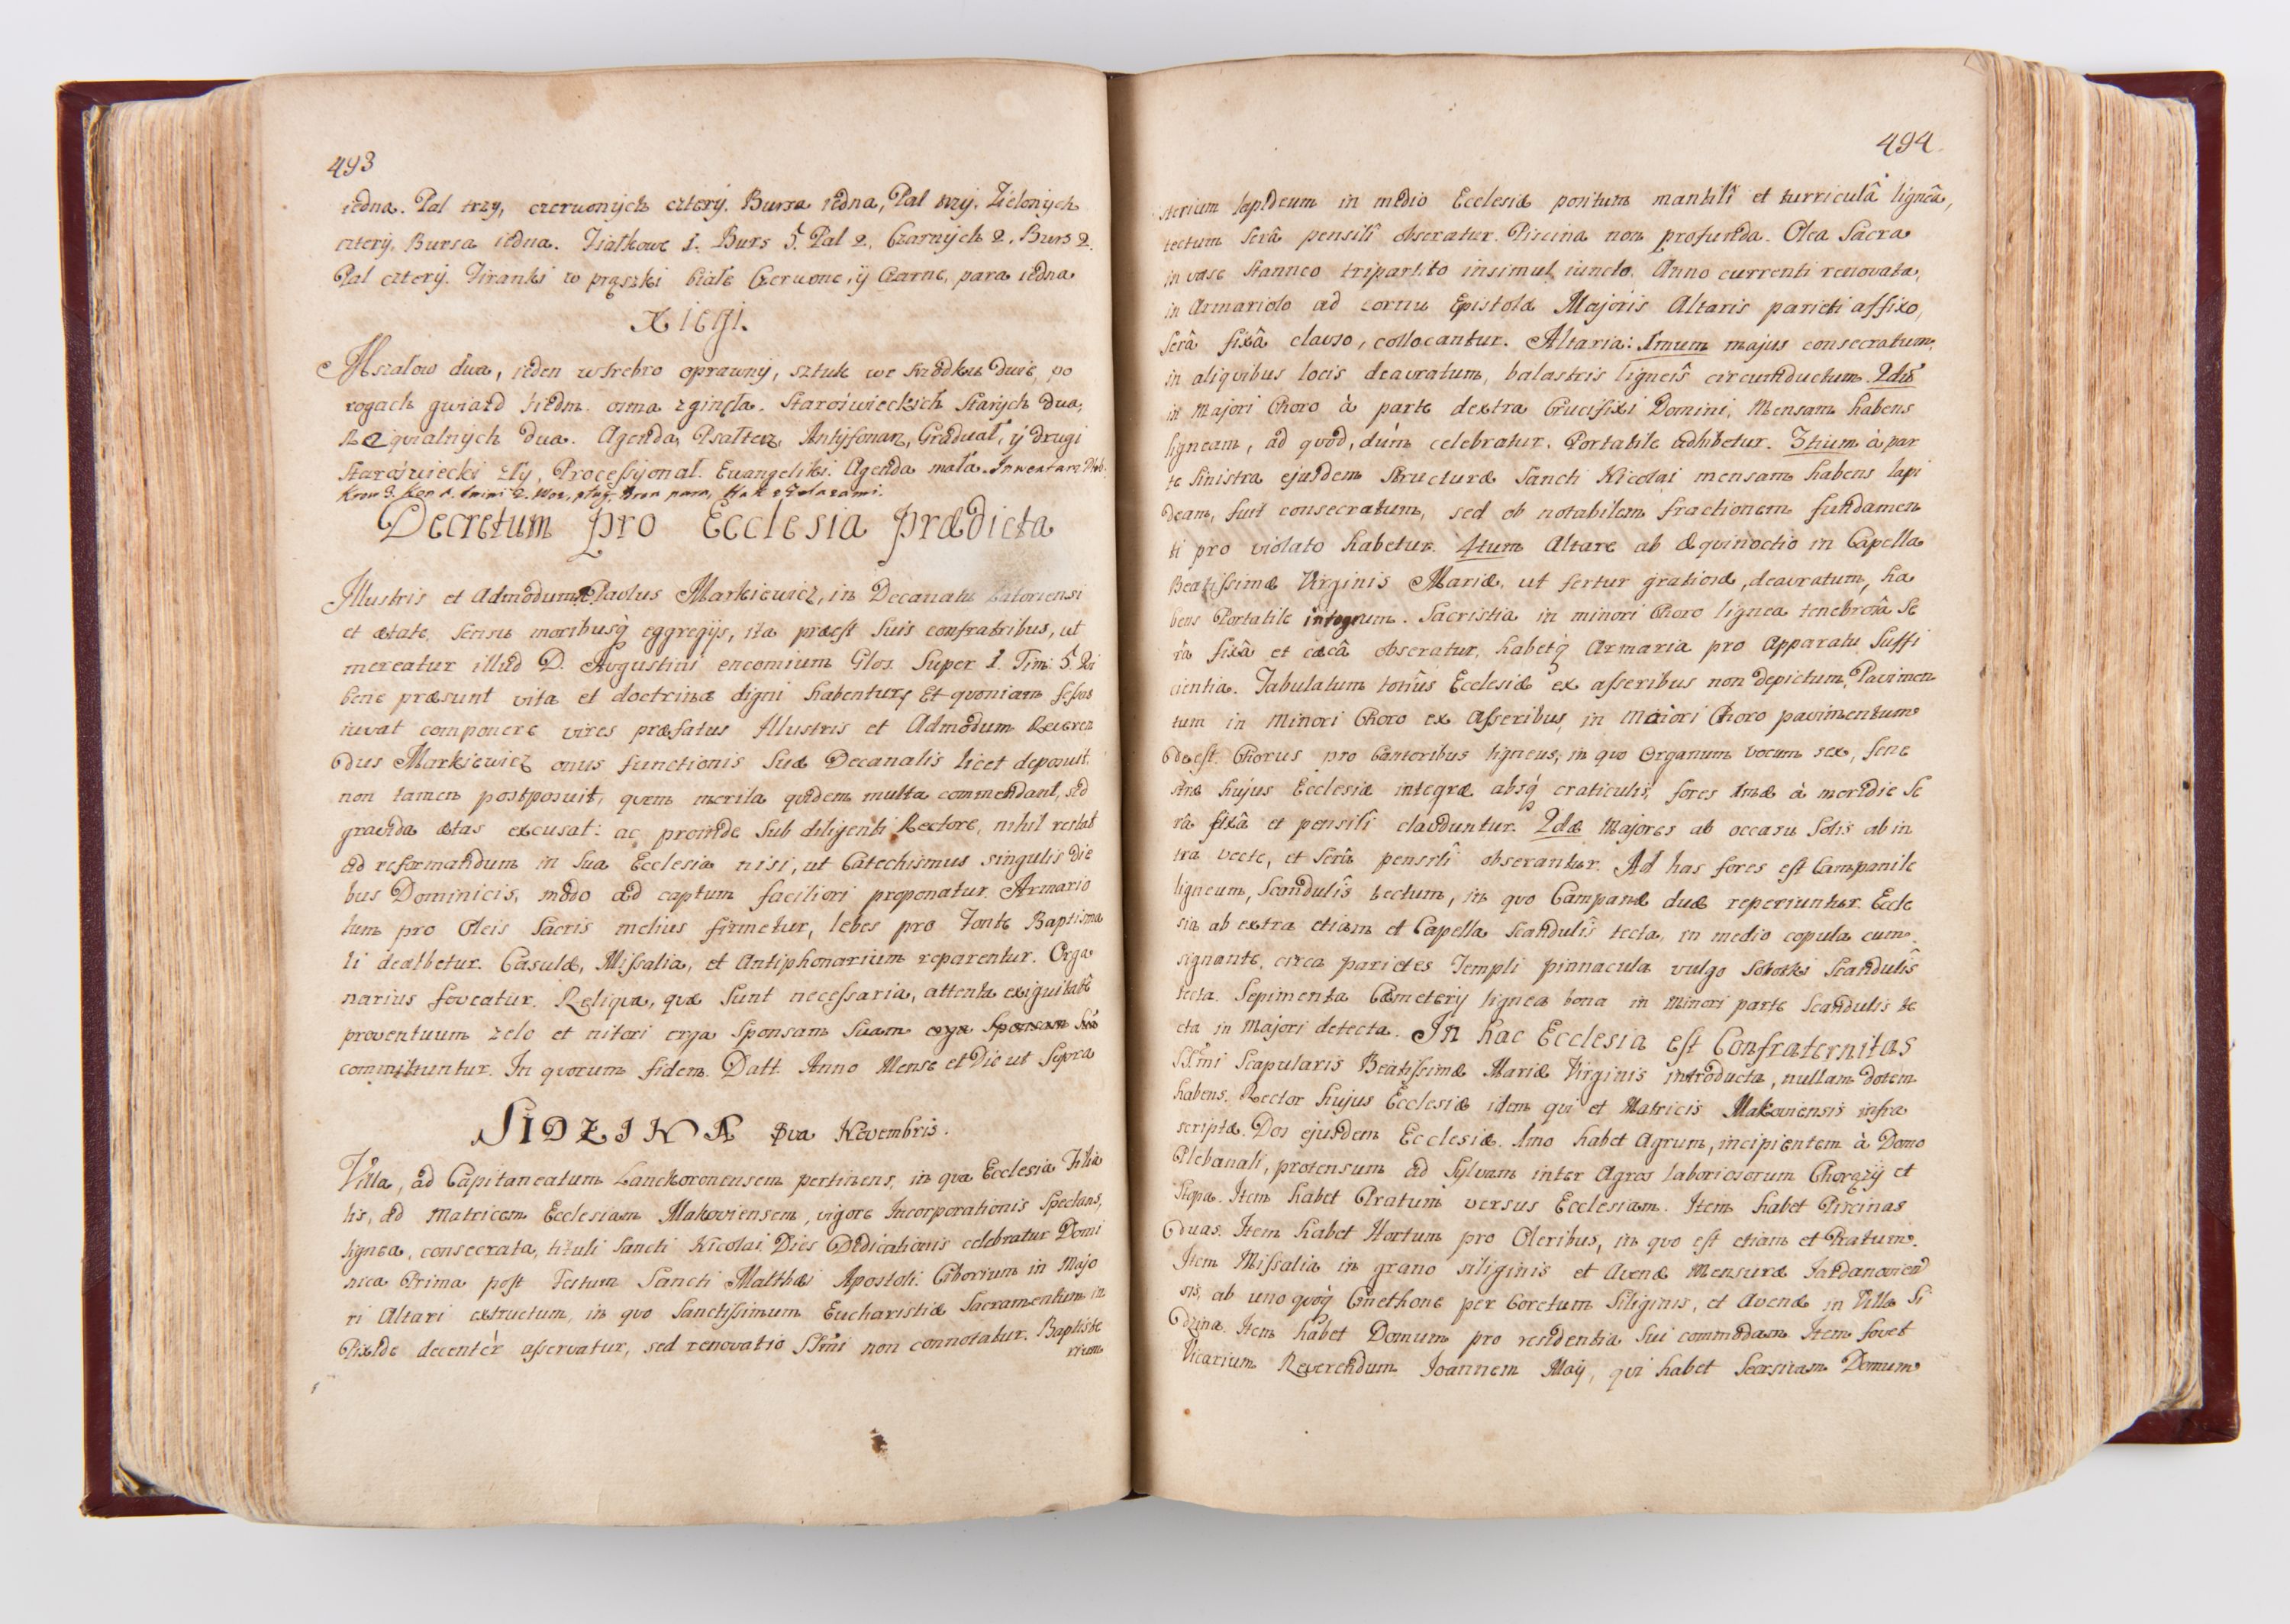 493
iedna. Pal trzy, czerwonych cztery. Bursa iedna, Pal trzy. Zielonych
cztery. Bursa iedna. Fiałkowe 1. Burs 5. Pal 2. Czarnych 2. Burs 2.
Pal cztery. Firanki w prążki białe Czerwone, ÿ Czarne, para iedna
Xięgi.
Mszałow dwa, ieden wsrebro oprawny, sztuk we srzodku dwie, po
rogach gwiazd siedm. osma zginęła. Staroświeckich Starych dua,
Reqvialnych dua. Agenda, Psałterz, Antyfonarz, Graduał, ÿ drugi
Staroświecki zły, Processyonał. Euangeliki. Agenda mała. Inwentarz Pleb.
Krow 3. Kon 1. Swini 2. Woz, pług, Bron para,
Decretum pro Ecclesia prædicta
Illustris et Admodum R. Paulus Markiewicz, in Decanatu Zatoriensi
et ætate, sensu moribusq̃ eggregijs, ita præest suis confratribus, ut
mereatur illud D. Augustini encomium Glos. Super 1. Tim: 5. Qui
bene præsunt vita et doctrina digni habentur; Et qvoniam fessos
iuvat componere vires præfatus Illustris et Admodum Reveren
dus Markiewicz onus functionis suæ Decanalis licet deposuit.
non tamen postposuit, qvem merita qvidem multa commendant, sed
gravida ætas excusat: ac proinde sub diligenti Rectore, nihil restat
ad reformandum in sua Ecclesia nisi, ut Catechismus singulis die
bus Dominicis, modo ad captum faciliori proponatur. Armario
lum pro Oleis Sacris melius firmetur, lebes pro Fonte Baptisma
li dealbetur. Casulæ, Missalia, et Antiphonarium reparentur. Orga
narius foveatur. Reliqva, qvæ sunt necessaria, attenta exiguitate
proventuum zelo et nitori erga Sponsam Suam erga Sponsam Suã
committuntur. In qvorum fidem. Datt. Anno Mense et Die ut Supra
SIDZINA 9va Novembris.
Villa, ad Capitaneatum Lanckoronensem pertinens, in qva Ecclesia Filia
lis, ad Matricem Ecclesiam Makoviensem, vigore Incorporationis Spectans,
lignea, consecrata, tituli Sancti Nicolai. Dies Dedicationis celebratur Domi
nica Prima post Festum Sancti Matthæi Apostoli. Ciborium in Majo
ri Altari extructum, in qvo Sanctissimum Eucharistiæ Sacramentum in
Pixide decentèr asservatur, sed renovatio SSmi non connotatur. Baptiste
rium
494
sterium lapideum in medio Ecclesiæ positum mantili et turriculâ ligneâ,
tectum serâ pensili obseratur. Piscina non profunda. Olea Sacra
in vase Stanneo tripartito insimul iuncto. Anno currenti renovata,
in Armariolo ad cornu Epistolæ Majoris Altaris parieti affixo,
serâ fixâ clauso, collocantur. Altaria: 1mum majus consecratum,
in aliqvibus locis deauratum, balastris ligneis circumductum. 2dũ
in Majori Choro à parte dextra Crucifixi Domini, Mensam habens
ligneam, ad qvod, dum celebratur. Portatile adhibetur. 3tium à par
te Sinistra ejusdem Structuræ Sancti Nicolai mensam habens lapi
deam, fuit consecratum, sed ob notabilem fractionem fundamen
ti pro violato habetur. 4tum Altare ab Æqvinoctio in Capella
Beatissimæ Virginis Mariæ, ut fertur gratiosæ, deauratum, ha
bens Portatile integrum. Sacristia in minori Choro lignea tenebrosa se
râ fixâ et cæcâ obseratur, habetq̃ Armaria pro Apparatu Suffi
cientia. Tabulatum totius Ecclesiæ ex asseribus non depictum, Pavimen
tum in Minori Choro ex Asseribus, in Maiori Choro pavimentum
deest. Chorus pro Cantoribus ligneus, in qvo Organum vocum sex, fene
stræ hujus Ecclesiæ integræ absq̃ craticulis, fores 1mæ à meridie se
râ fixâ et pensili clauduntur. 2dæ Majores ab occasu Solis ab in
tra vecte, et serâ pensili obserantur. Ad has fores est Campanile
ligneum, Scandulis tectum, in qvo Campanæ duæ reperiuntur. Eccle
sia ab extra etiam et Capella Scandulis tecta, in medio copula cum
signante, circa parietes Templi pinnacula vulgo Sobotki Scandulis
tecta. Sepimenta Cæmeterij lignea bona in Minori parte Scandulis te
cta in Majori detecta. In hac Ecclesia est Confraternitas
SSmi Scapularis Beatissimæ Mariæ Virginis introducta, nullam dotem
habens. Rector hujus Ecclesiæ idem qvi et Matricis Makoviensis infra
scriptæ. Dos ejusdem Ecclesiæ. 1mo habet Agrum, incipientem à Domo
Plebanali, protensum ad Sylvam inter Agros laboriosorum Chorąży et
Stopa. Item habet Pratum versus Ecclesiam. Item habet Piscinas
duas. Item habet Hortum pro Oleribus, in qvo est etiam et Pratum.
Item Missalia in grano siliginis et Avenæ Mensuræ Jordanovien
sis, ab uno qvoq̃ Cmethone per Coretum Siliginis, et Avenæ in Villa Si
dzina. Item habet Domum pro residentia sui commodam. Item fovet
Vicarium Reverendum Joannem May, qvi habet Seorsivam Domum